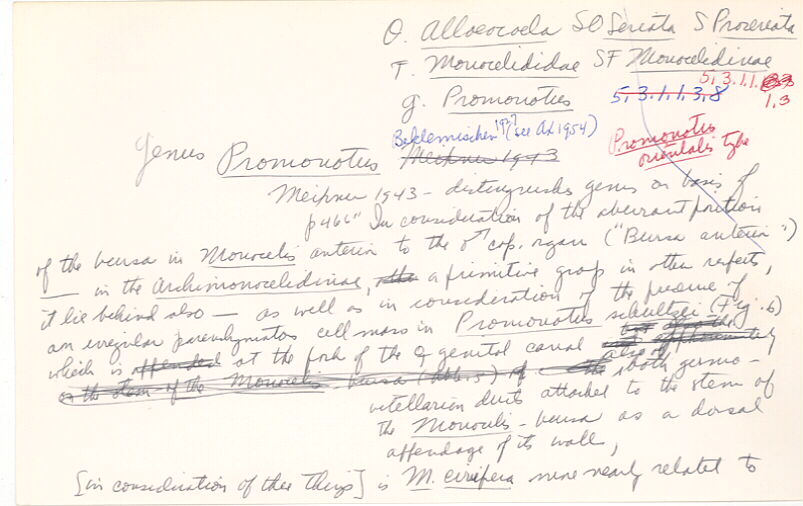 O. Alloeocoela SO Seriata S Proseriata
F. Monocelididae SF Monocelidinae
g. Promonotus 5.3.1.1.3.8 5.3.1.1. 1.3
Beklemischev 1927 (see Ax 1954)
Genus Promonotus Meixner 1943
Promonotus orientalis type
Meixner 1943 - distinguishes genus on basis of
p466 "In consideration of the aberrant position
of the bursa in Monocelis anterior to the ♂ cop. organ ("Bursa anterior")
— in the Archimonocelidinae, a primitive group in other respects,
it lie behind also — as well as in consideration of the presence of
an irregular parenchymatos cell mass in Promonotus schultzei (Fig. 6)
which is appended at the fork of the ♀ genital canal
or the stem of the Monocelis bursa both germo-
vitellarian ducts attached to the stem of
the Monocelis-bursa as a dorsal
appendage of its wall,
[in consideration of these things] is M. cirrifera more nearly related to